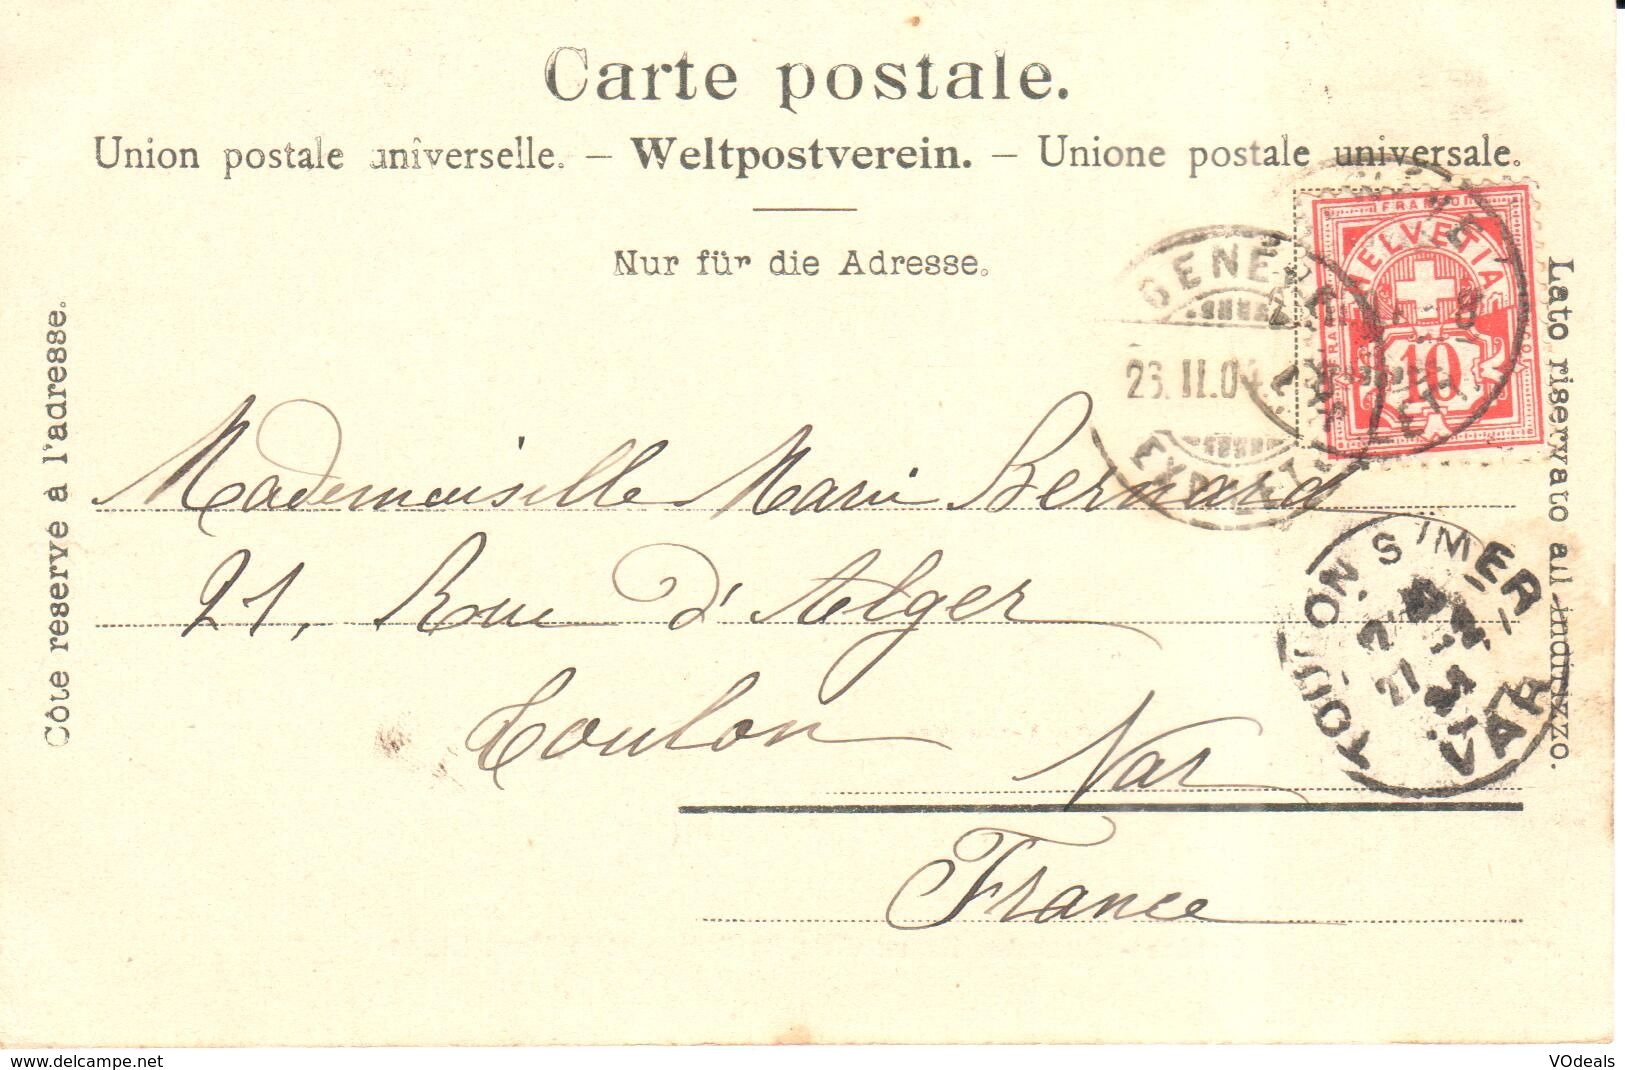 Carte postale.
Union postale universelle. – Weltpostverein. – Unione postale universale.
Nur für die Adresse.
Côté reservé à l'adresse.
Lato riservato all indirizzo.
FRANCO
HELVETIA
10
GENÈVE
23.II.0
EXP. LET
Mademoiselle Marie Bernard
21, Rue d'Alger
Toulon Var
France
TOULON S MER
VAR
www.delcampe.net
VOdeals